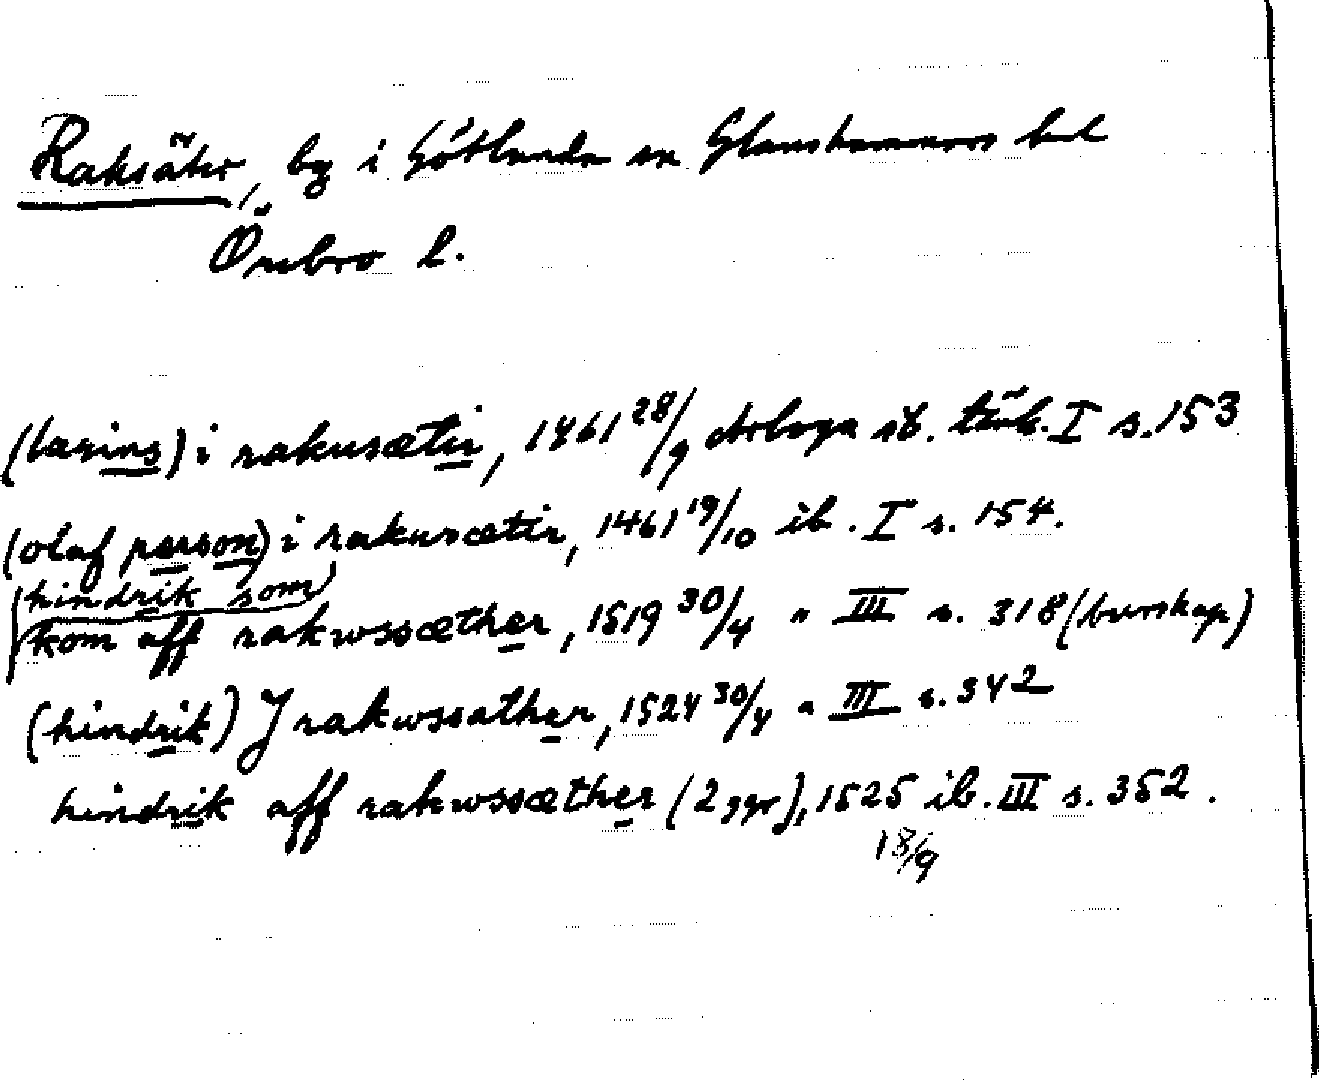 Raksäter, by i Götlunda sn Glanshammars hd
Örebro l.
(larins) i rakusætir, 1461 28/9 Arboga sb. täub. I s. 153
(olaf person) i rakusætir, 1461 19/10 ib. I s. 154.
(hindrik som)
kom aff rakwssæther, 1519 30/4 " III s. 318 (burskap)
(hindrik) J rakwssather, 1524 30/4 " III s. 342
hindrik aff rakwssæther (2 ggr), 1525 ib. III s. 352.
18/9